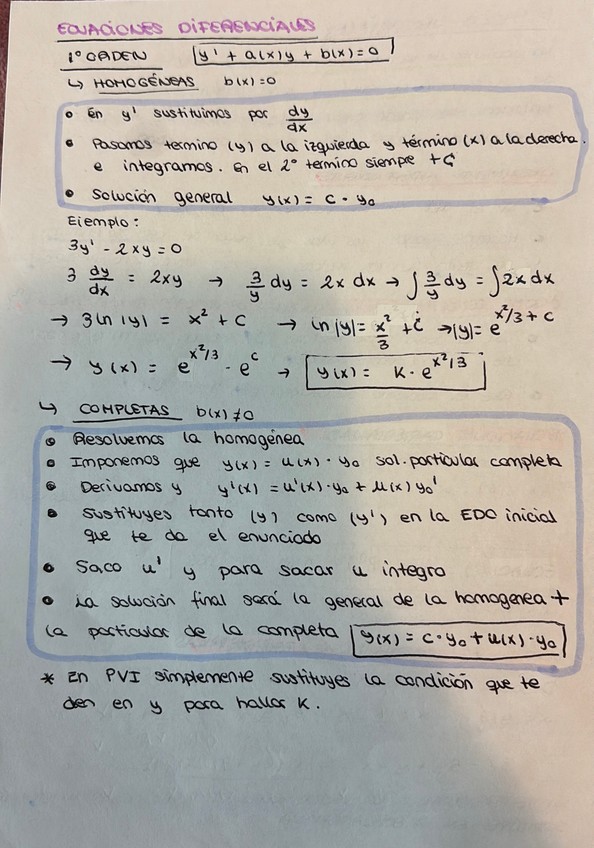 ECUACIONES DIFERENCIALES
1º ORDEN y' + a(x)y + b(x) = 0
↳ HOMOGÉNEAS b(x) = 0
• En y' sustituimos por dy/dx
• Pasamos termino (y) a la izquierda y término (x) a la derecha
e integramos. En el 2º termino siempre + C
• Solución general y(x) = c · y₀
Ejemplo:
3y' - 2xy = 0
3 dy/dx = 2xy → 3/y dy = 2x dx → ∫ 3/y dy = ∫ 2x dx
→ 3 ln |y| = x² + C → ln |y| = x²/3 + C → |y| = e^(x²/3 + c)
→ y(x) = e^(x²/3) · e^c → y(x) = K · e^(x²/3)
↳ COMPLETAS b(x) ≠ 0
• Resolvemos la homogénea
• Imponemos que y(x) = u(x) · y₀ sol. particular completa
• Derivamos y y'(x) = u'(x) · y₀ + u(x) y₀'
• Sustituyes tanto (y) como (y') en la EDO inicial
que te da el enunciado
• Saco u' y para sacar u integro
• La solución final será la general de la homogenea +
la particular de la completa y(x) = c · y₀ + u(x) · y₀
* En PVI simplemente sustituyes la condición que te
den en y para hallar K.